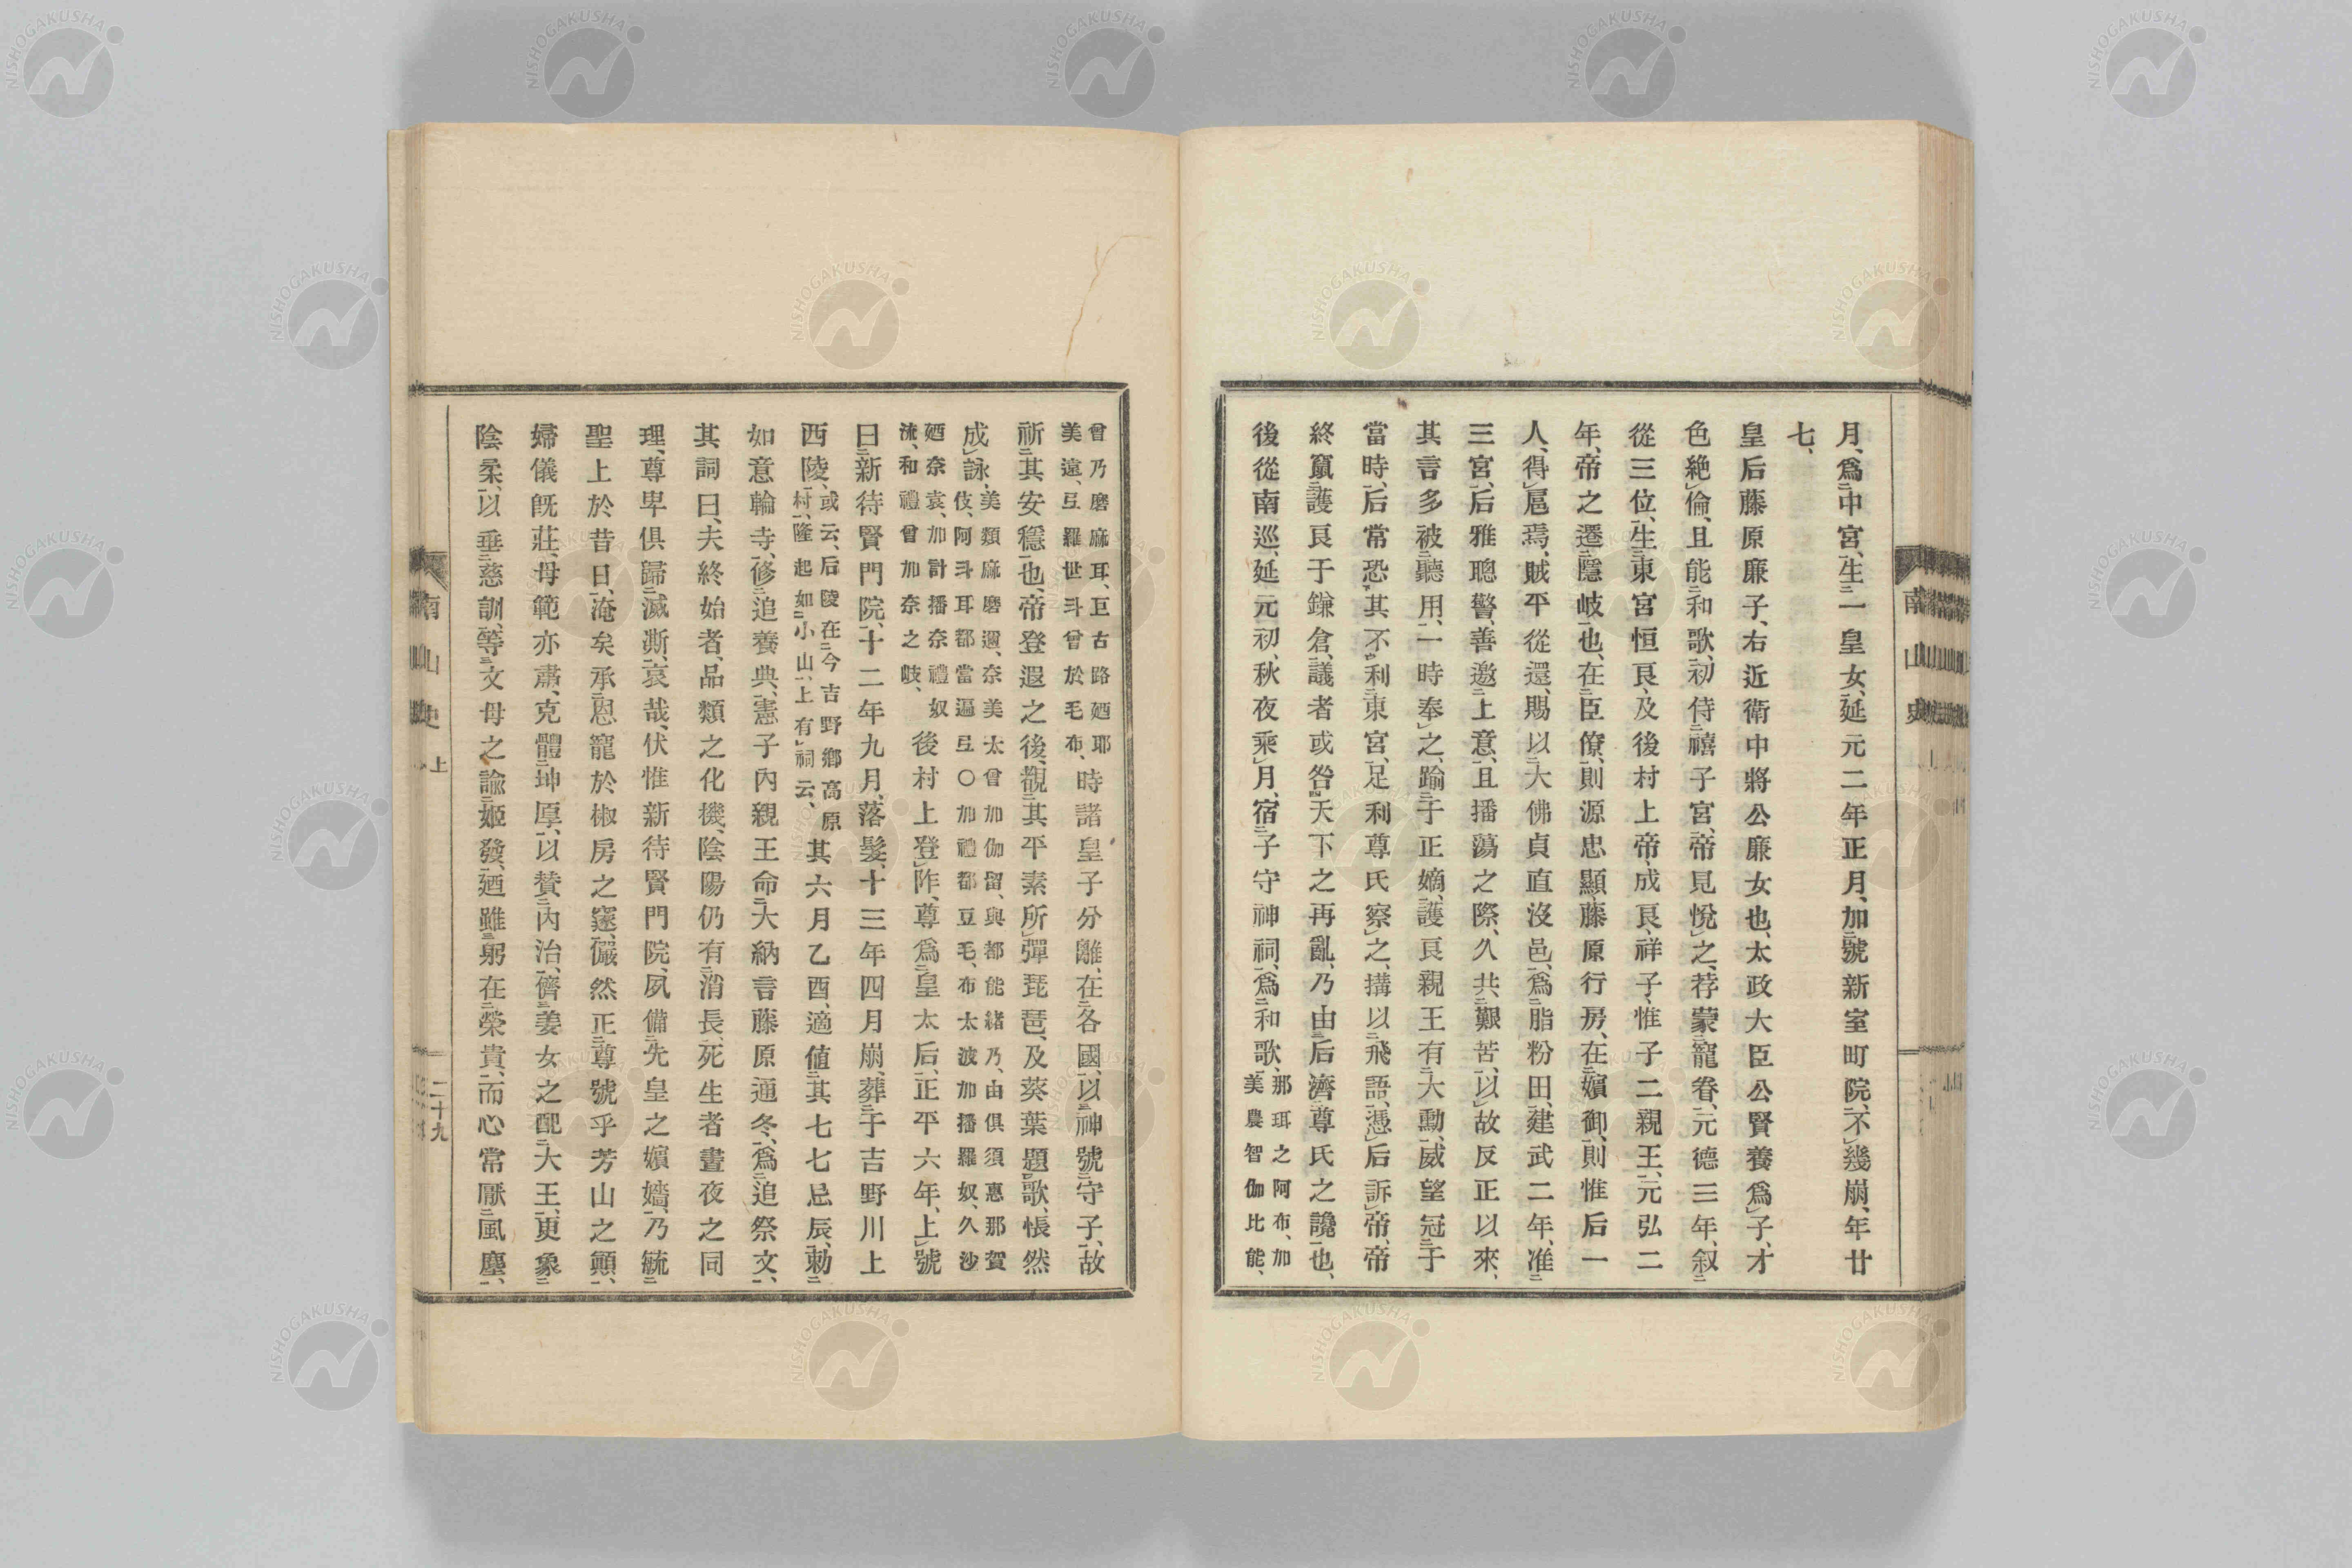 月、爲中宮、生一皇女、延元二年正月、加號新室町院、不幾崩、年廿
七、
皇后藤原廉子、右近衛中將公廉女也、太政大臣公賢養爲子、才
色絶倫、且能和歌、初侍禧子宮、帝見悅之、荐蒙寵眷、元德三年、叙
從三位、生東宮恒良、及後村上帝、成良、祥子、惟子二親王、元弘二
年、帝之遷隱岐也、在臣僚、則源忠顯、藤原行房、在嬪御、則惟后一
人、得扈焉、賊平從還、賜以大佛貞直沒邑、爲脂粉田、建武二年、准
三宮、后雅聰警、善邀上意、且播蕩之際、久共艱苦、以故反正以來、
其言多被聽用、一時奉之、踰于正嫡、護良親王有大勳、威望冠于
當時、后常恐其不利東宮、足利尊氏察之、搆以飛語、憑后訴帝、帝
終竄護良于鎌倉、議者或咎天下之再亂、乃由后濟尊氏之讒也、
後從南巡、延元初、秋夜乘月、宿子守神祠、爲和歌、那珥之阿布、加
美農智伽比能、
曾乃磨麻耳、亙古路廼耶
美遠、亙羅世斗曾於毛布、時諸皇子分離、在各國、以神號守子、故
祈其安穩也、帝登遐之後、觀其平素所彈琵琶、及葵葉題歌、悵然
成詠、美類麻磨邇、奈美太曾加伽留、與都能緒乃、由俱須惠那賀
伎、阿斗耳都當逼亙〇加禮都豆毛、布太波加播羅奴、久沙
廼奈袁、加計播奈禮奴
流、和禮曾加奈之岐、後村上登阼、尊爲皇太后、正平六年、上號
曰新待賢門院、十二年九月、落髮、十三年四月崩、葬于吉野川上
西陵、或云、后陵在今吉野鄉高原
村、隆起如小山、上有祠云、其六月乙酉、適値其七七忌辰、勅
如意輪寺、修追養典、憲子內親王命大納言藤原通冬、爲追祭文、
其詞曰、夫終始者、品類之化機、陰陽仍有消長、死生者晝夜之同
理、尊卑俱歸滅澌、哀哉、伏惟新待賢門院、夙備先皇之嬪嬙、乃毓
聖上於昔日、淹矣承恩寵於椒房之窓、儼然正尊號乎芳山之顚、
婦儀旣莊、母範亦肅、克體坤厚、以賛內治、儕姜女之配大王、更象
陰柔、以垂慈訓、等文母之諭姬發、廼雖躬在榮貴、而心常厭風塵、
南山史
上
二十九
南山史